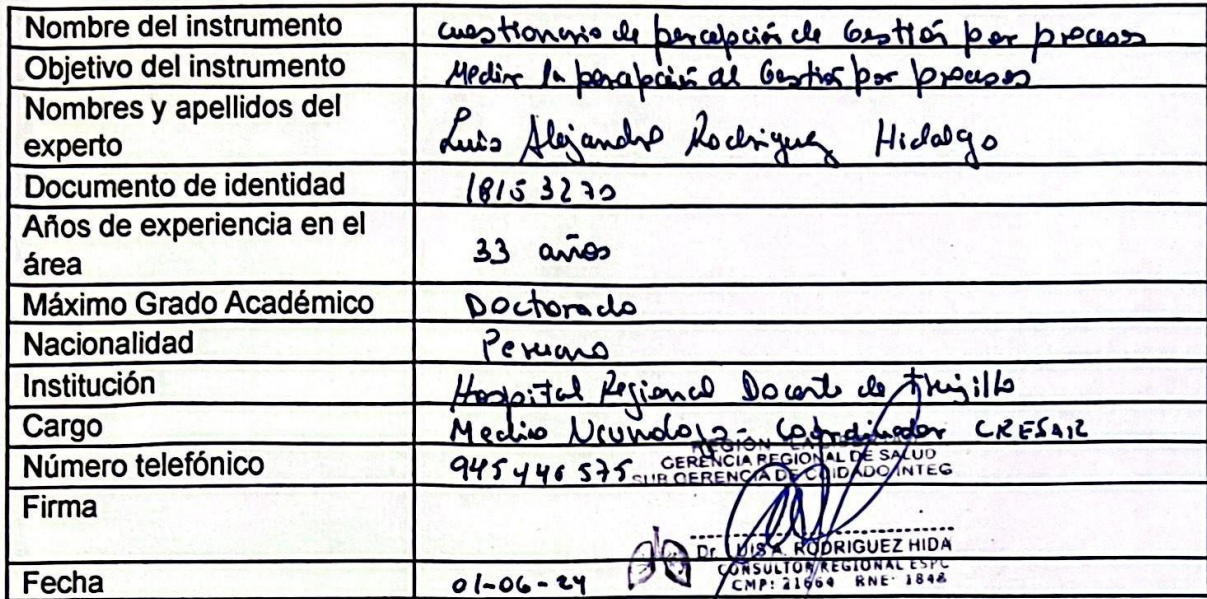 Nombre del instrumento cuestionario de percepción de Gestión por procesos
Objetivo del instrumento Medir la percepción de Gestión por procesos
Nombres y apellidos del
experto Luis Alejandro Rodriguez Hidalgo
Documento de identidad 18153270
Años de experiencia en el
área 33 años
Máximo Grado Académico Doctorado
Nacionalidad Peruano
Institución Hospital Regional Docente de Trujillo
Cargo Medico Neumologo - Coordinador CRESAR
REGION
Número telefónico 945446575 GERENCIA REGIONAL DE SALUD
SUB GERENCIA DE CUIDADO INTEG
Firma
Dr. LUIS A. RODRIGUEZ HIDA
CONSULTOR REGIONAL ESPC
Fecha 01-06-24 CMP: 21664 RNE: 1848